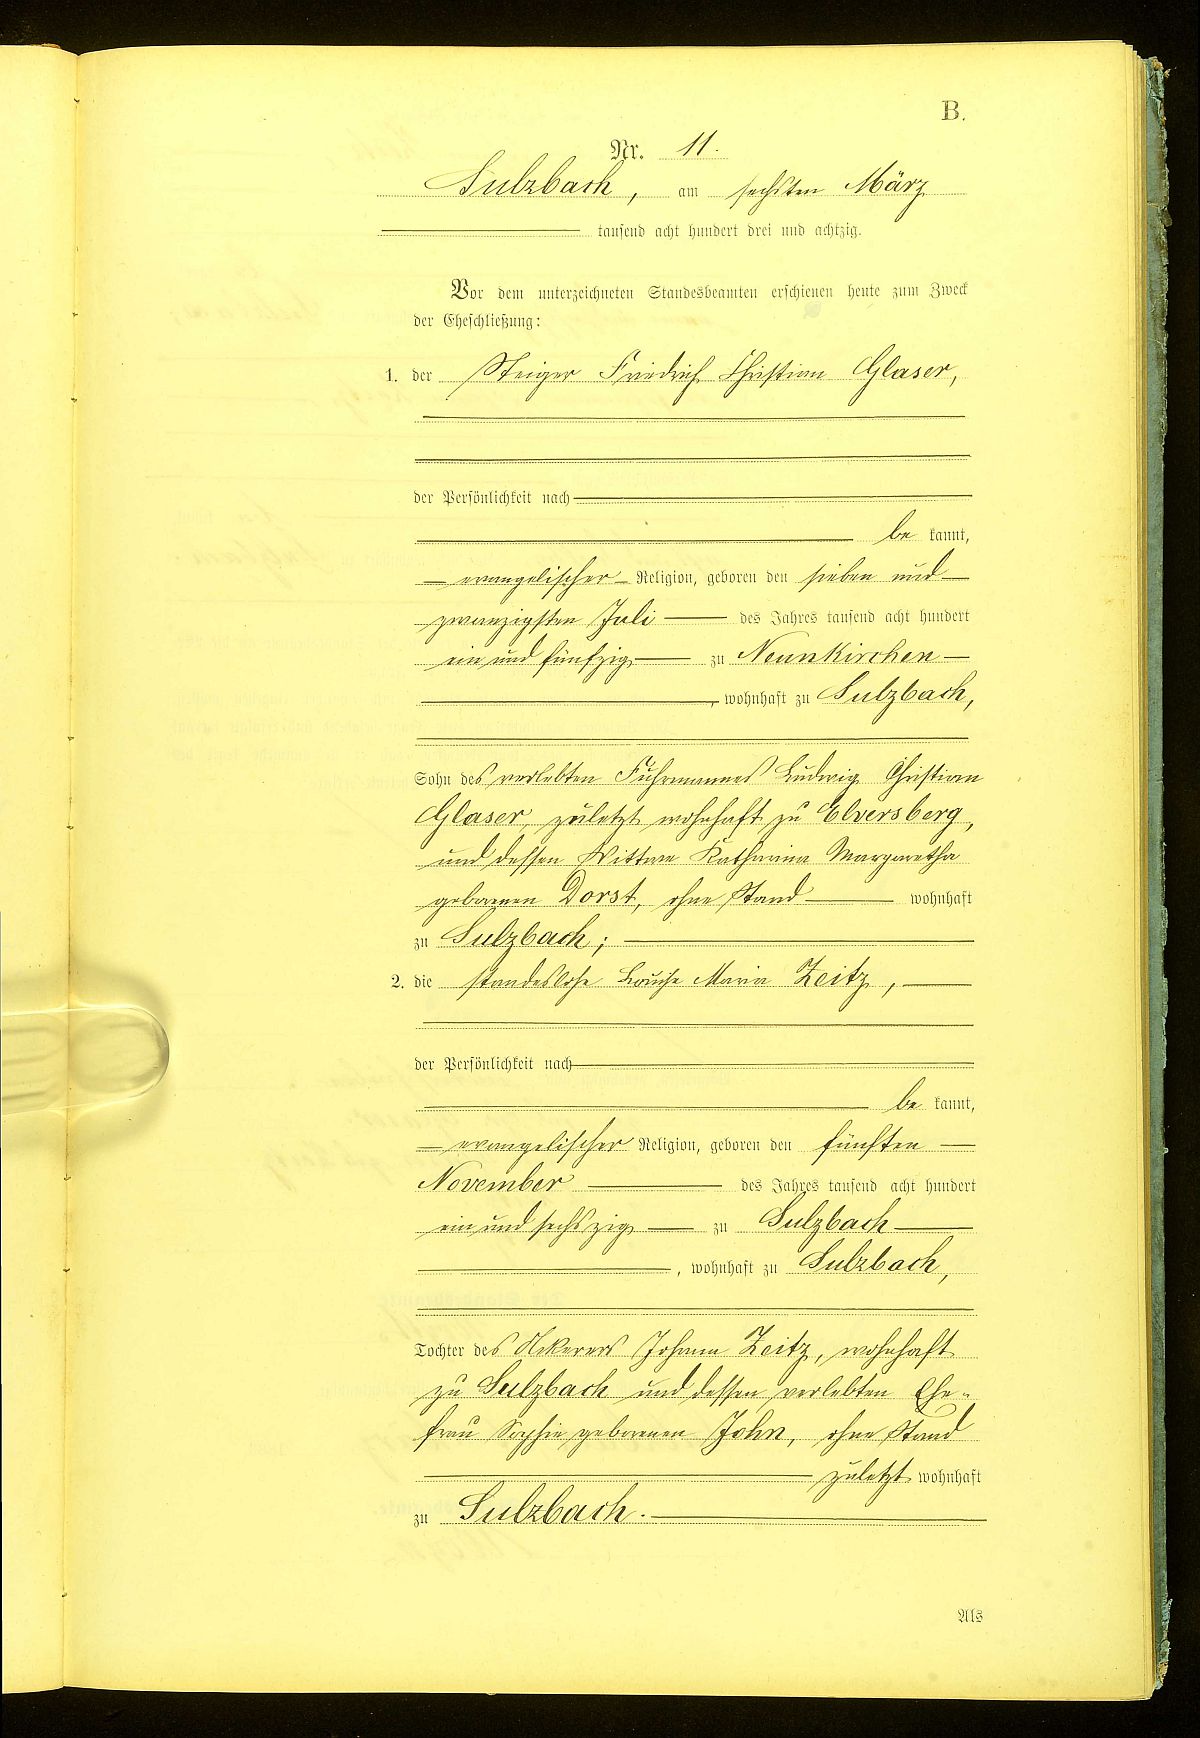 B.
Nr. 11.
Sulzbach, am sechsten März
tausend acht hundert drei und achtzig.
Vor dem unterzeichneten Standesbeamten erschienen heute zum Zweck
der Eheschließung:
1. der Steiger Friedrich Christian Glaser,
der Persönlichkeit nach
be kannt,
evangelischer Religion, geboren den sieben und
zwanzigsten Juli des Jahres tausend acht hundert
ein und fünfzig zu Neunkirchen
, wohnhaft zu Sulzbach,
Sohn des verlebten Fuhrmannes Ludwig Christian
Glaser, zuletzt wohnhaft zu Elversberg,
und dessen Wittwe Katharina Margaretha
geborenen Dorst, ohne Stand wohnhaft
zu Sulzbach;
2. die standeslose Louise Maria Zeitz,
der Persönlichkeit nach
be kannt,
evangelischer Religion, geboren den fünften
November des Jahres tausend acht hundert
ein und sechszig zu Sulzbach
, wohnhaft zu Sulzbach,
Tochter des Ackerers Johann Zeitz, wohnhaft
zu Sulzbach und dessen verlebten Ehe-
frau Sophie geborenen John, ohne Stand
zuletzt wohnhaft
zu Sulzbach.
Als